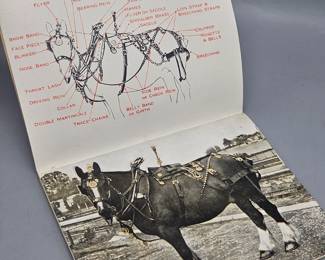 FLYER
BEARING REIN
HAMES
FLYER ON SADDLE
SADDLE
LOIN STRAP &
BREECHING STRAPS
BROW BAND
FACE PIECE
BLINKER
NOSE BAND
CRUPPER
ROSETTE
& BELLS
BREECHING
THROAT LASH
DRIVING REIN
COLLAR
DOUBLE MARTINGALE
TRACE CHAINS
BELLY BAND
OR GIRTH
SIDE REIN
OR CHECK REIN